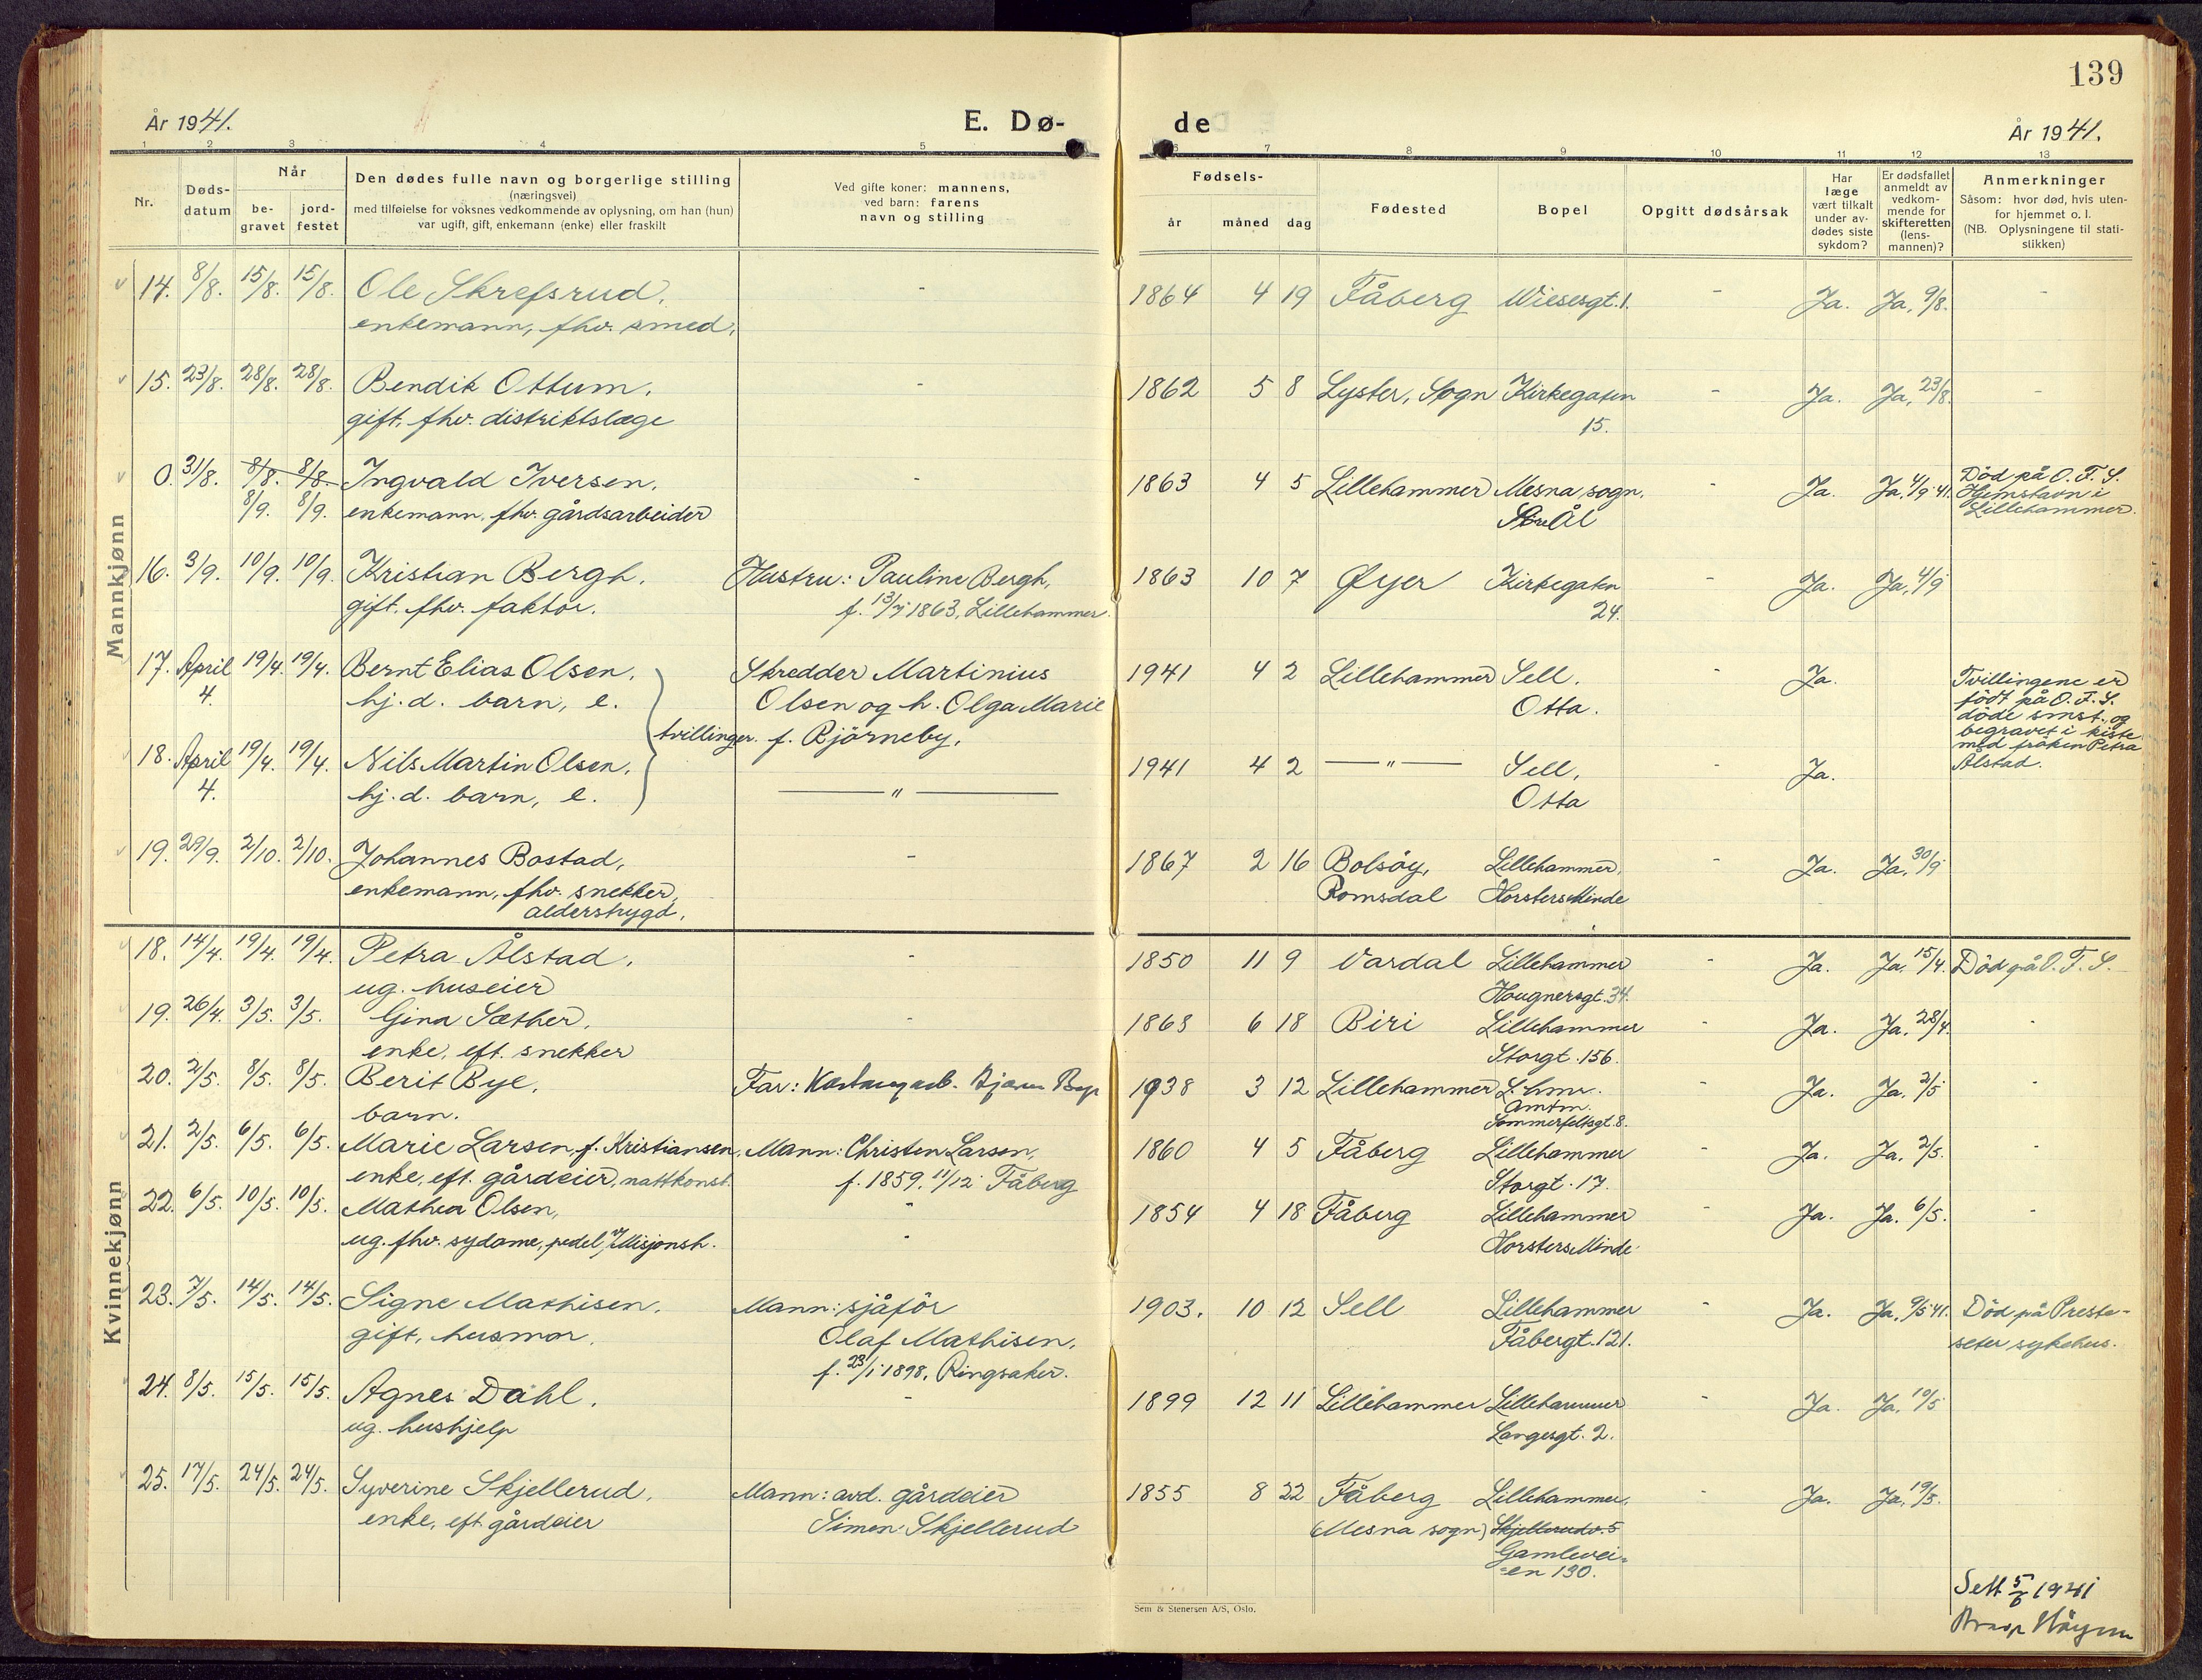 139
År 1941.
E. Dø-
de
År 1941.
1 2 3 4 5 6 7 8 9 10 11 12 13
Nr.
Døds-
datum
Når
be-
gravet
jord-
festet
Den dødes fulle navn og borgerlige stilling
(næringsvei)
med tilføielse for voksnes vedkommende av oplysning, om han (hun)
var ugift, gift, enkemann (enke) eller fraskilt
Ved gifte koner: mannens,
ved barn: farens
navn og stilling
Fødsels-
år
måned
dag
Fødested
Bopel
Opgitt dødsårsak
Har
læge
vært tilkalt
under av-
dødes siste
sykdom?
Er dødsfallet
anmeldt av
vedkom-
mende for
skifteretten
(lens-
mannen)?
Anmerkninger
Såsom: hvor død, hvis uten-
for hjemmet o. l.
(NB. Oplysningene til stati-
stikken)
Mannkjønn
14. 8/8. 15/8. 15/8. Ole Skrefsrud, - 1864 4 19 Fåberg Wiesesgt. 1. - Ja. Ja, 9/8. -
enkemann, fhv. smed,
15. 23/8. 28/8. 28/8. Bendik Ottum, - 1862 5 8 Lyster, Sogn Kirkegaten - Ja. Ja, 23/8. -
gift, fhv. distriktslæge 15.
0. 31/8. 8/8. 8/8. Ingvald Iversen, - 1863 4 5 Lillehammer Mesna sogn, Ja. Ja, 4/9 41. Död på O. F. S.
8/9. 8/9. enkemann, fhv. gårdsarbeider Ål Hjemstavn i
Lillehammer.
16. 3/9. 10/9. 10/9. Kristian Bergh, Hustru: Pauline Bergh, 1863 10 7 Øyer Kirkegaten - Ja. Ja, 4/9
gift, fhv. faktor. f. 13/7 1863, Lillehammer. 24.
17. April 19/4. 19/4. Bernt Elias Olsen, Skredder Martinius 1941 4 2 Lillehammer Sell, - Ja. Tvillingene er
4. hj. d. barn, e. Olsen og h. Olga Marie Otta. född på O. F. S.
döde smst. og
tvillinger. f. Bjørneby, begravet i kiste
18. April 19/4. 19/4. Nils Martin Olsen, 1941 4 2 — " — Sell, - Ja. med fröken Petra
4. hj. d. barn, e. — " — Otta Ålstad.
19. 29/9. 2/10. 2/10. Johannes Bostad, - 1867 2 16 Bolsöy, Lillehammer, - Ja. Ja, 30/9
enkemann, fhv. snekker, Romsdal Horsters Minde
alderstrygd.
Kvinnekjønn
18. 14/4. 19/4. 19/4. Petra Ålstad, - 1850 11 9 Vardal Lillehammer - Ja. Ja, 15/4. Död på O. F. S.
ug. huseier Hougnersgt. 34.
19. 26/4. 3/5. 3/5. Gina Sæther, - 1863 6 18 Biri Lillehammer - Ja. Ja, 28/4. -
enke, eft. snekker Storgt. 156.
20. 2/5. 8/5. 8/5. Berit Bye, Far: Bjarne Bye 1938 3 12 Lillehammer L.hmr. Ja. Ja, 2/5 -
barn. Amtm.
Sommerfeltsgt. 8.
21. 2/5. 6/5. 6/5. Marie Larsen, f. Kristiansen, Mann: Christen Larsen, 1860 4 5 Fåberg Lillehammer Ja. Ja, 2/5. -
enke, eft. gårdeier, nattkonst. f. 1859. 11/12 Fåberg Storgt. 17.
22. 6/5. 10/5. 10/5. Mathea Olsen, - 1854 4 18 Fåberg Lillehammer - Ja. Ja. 6/5. -
ug. fhv. sydame, pedel v/ Misjonsh. - Horsters Minde
23. 7/5. 14/5. 14/5. Signe Mathisen, Mann: sjåför 1903. 10 12 Sell Lillehammer - Ja. Ja, 9/5 41. Död på Preste-
gift, husmor, Olaf Mathisen, Fåbergt. 121. seter sykehus.
f. 23/1 1898, Ringsaker.
24. 8/5. 15/5. 15/5. Agnes Dahl, - 1899 12 11 Lillehammer Lillehammer - Ja. Ja, 10/5
ug. hushjelp Langesgt. 2.
25. 17/5. 24/5. 24/5. Syverine Skjellerud, Mann: avd. gårdeier 1855 8 22 Fåberg Lillehammer, - Ja. Ja, 19/5.
enke, eft. gårdeier Simen Skjellerud (Mesna sogn) Skjellerudv. 5
Gamlevei-
en 130.
Sem & Stenersen A/S, Oslo.
Sett 5/6 1941